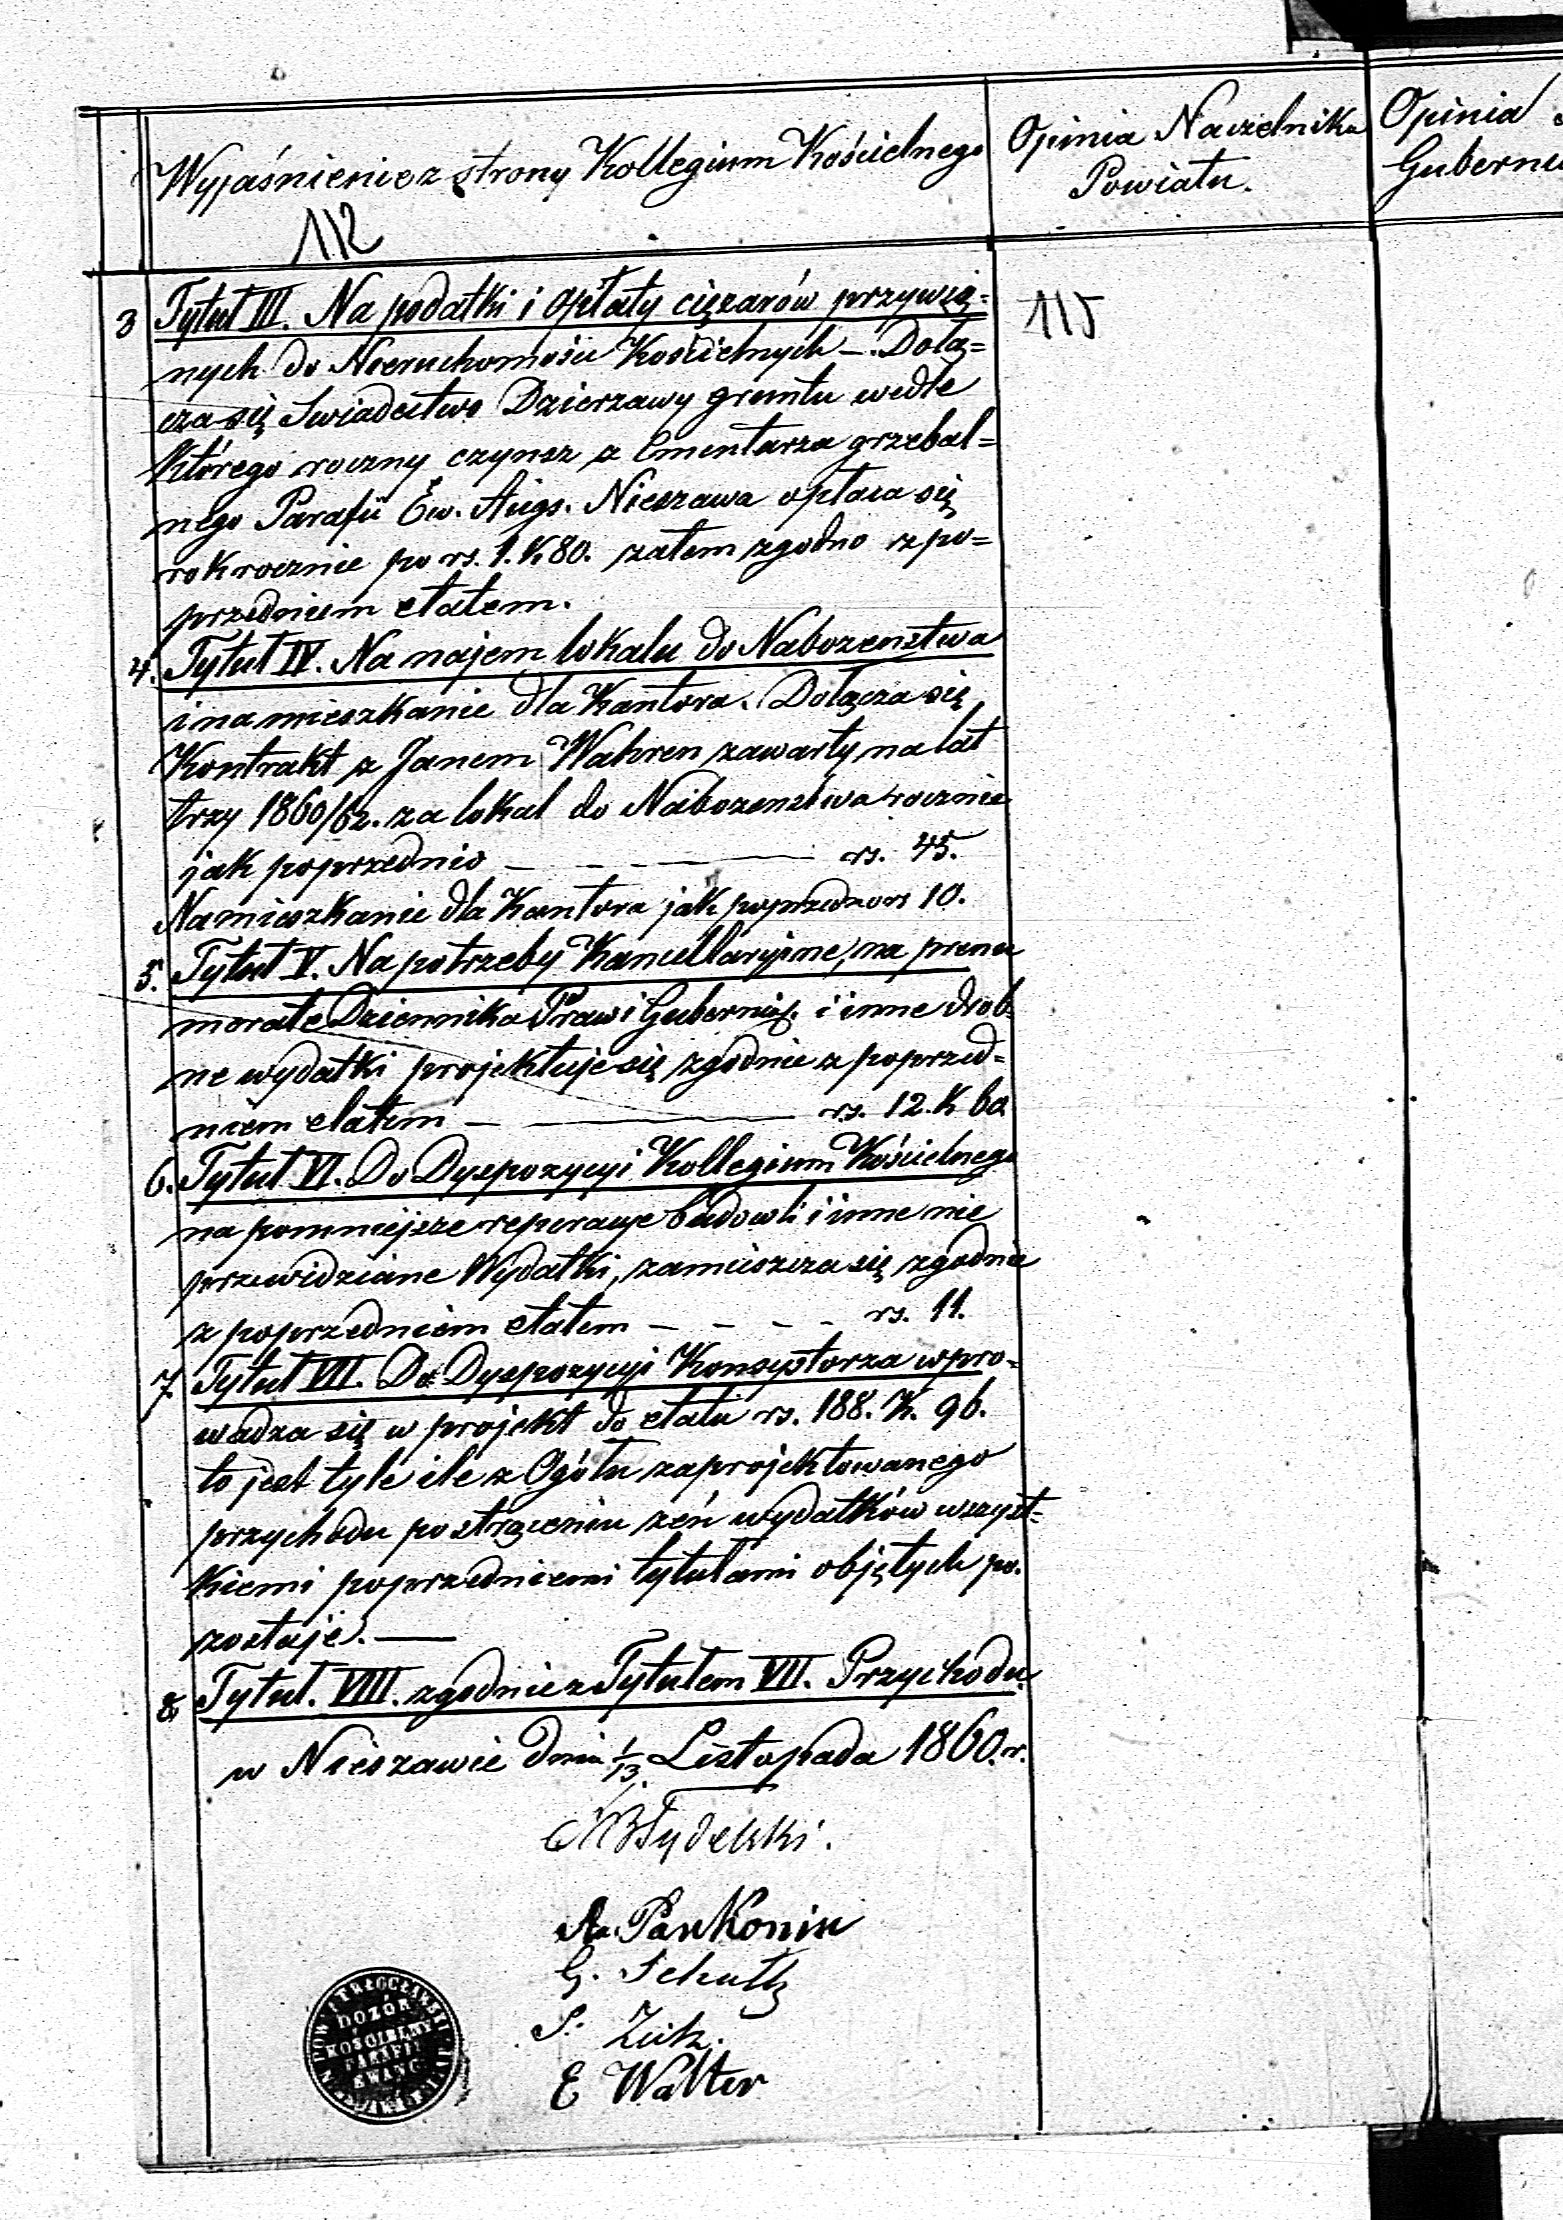 Wyjaśnienie z strony Kollegium Kościelnego
Opinia Naczelnika
Powiatu.
Opinia
112
115
3 Tytuł III. Na podatki i Opłaty ciężarów przywią=
nych do Nieruchomości Kościelnych —. Dołą=
cza się Swiadectwo Dzierzawy gruntu wedle
którego roczny czynsz z Cmentarza grzebal=
nego Parafii Ew. Augs. Nieszawa opłaca się
rokrocznie po rs. 1. K. 80. zatem zgodno z po=
przedniem etatem.
4. Tytuł IV. Na najem lokalu do Nabozenstwa
i na mieszkanie dla Kantora. Dołącza się
Kontrakt z Janem Wahren zawarty na lat
trzy 1860/62. za lokal do Nabozenstwa rocznie
jak poprzednio — — — rs. 45.
Na mieszkanie dla Kantora jak poprzedno rs 10.
5. Tytuł V. Na potrzeby Kancellaryjne, na prenu
meratę Dziennika Praw i Gubernij. i inne drob=
ne wydatki projektuje się zgodnie z poprzed=
niem etatem — — rs. 12. K 60
6. Tytuł VI. Do Dyspozycyi Kollegium Kościelnego
na pomniejsze reperacye budowli i inne nie
przewidziane Wydatki, zamieszcza się zgodnie
z poprzedniem etatem — — — — rs. 11.
7. Tytuł VII. Do Dyspozycyi Konsystorza wpro=
wadza się w projekt do etatu rs. 188. K. 96.
to jest tyle ile z Ogółu zaprojektowanego
przychodu po strąceniu zeń wydatków wszyst=
kiemi poprzedniemi tytułami objętych po.
zostaje. —
8. Tytuł. VIII. zgodnie z Tytułem VII. Przychodu.
w Nieszawie dnia 1/13 Listopada 1860. r.
A. Pankonin
G. Schultz
E Walter
DOZÓR
KOŚCIELNY
PARAFII
EWANG